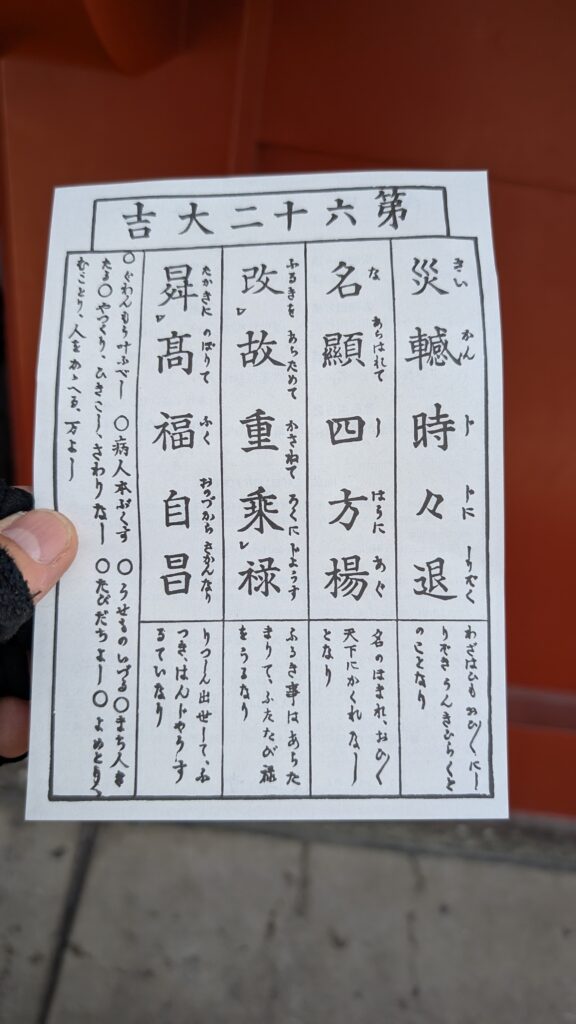 第六十二大吉
災轗時々退
さい かん じ じに しりぞく
わざはひも おひ〱 に し
りぞき うんきひらくと
のことなり
名顯四方楊
な あらはれて し はうに あぐ
名のほまれ、おひ〱
天下にかくれ なし
となり
改故重乘禄
ふるきを あらためて かさねて ろくにじようず
ふるき事はあらた
まりて、ふたたび禄
をうるなり
昇高福自昌
たかきに のぼりて ふく おのづから さかんなり
りつしん出世して、ふ
つき、はんじやうす
るていなり
〇ぐわんもう叶ふべし 〇病人本ぶくす 〇うせもの いづる〇まち人き
たる〇やづくり、ひきこし、さわりなし 〇たびだちよし〇よめとり、
むことり、人をかゝへる、万よし